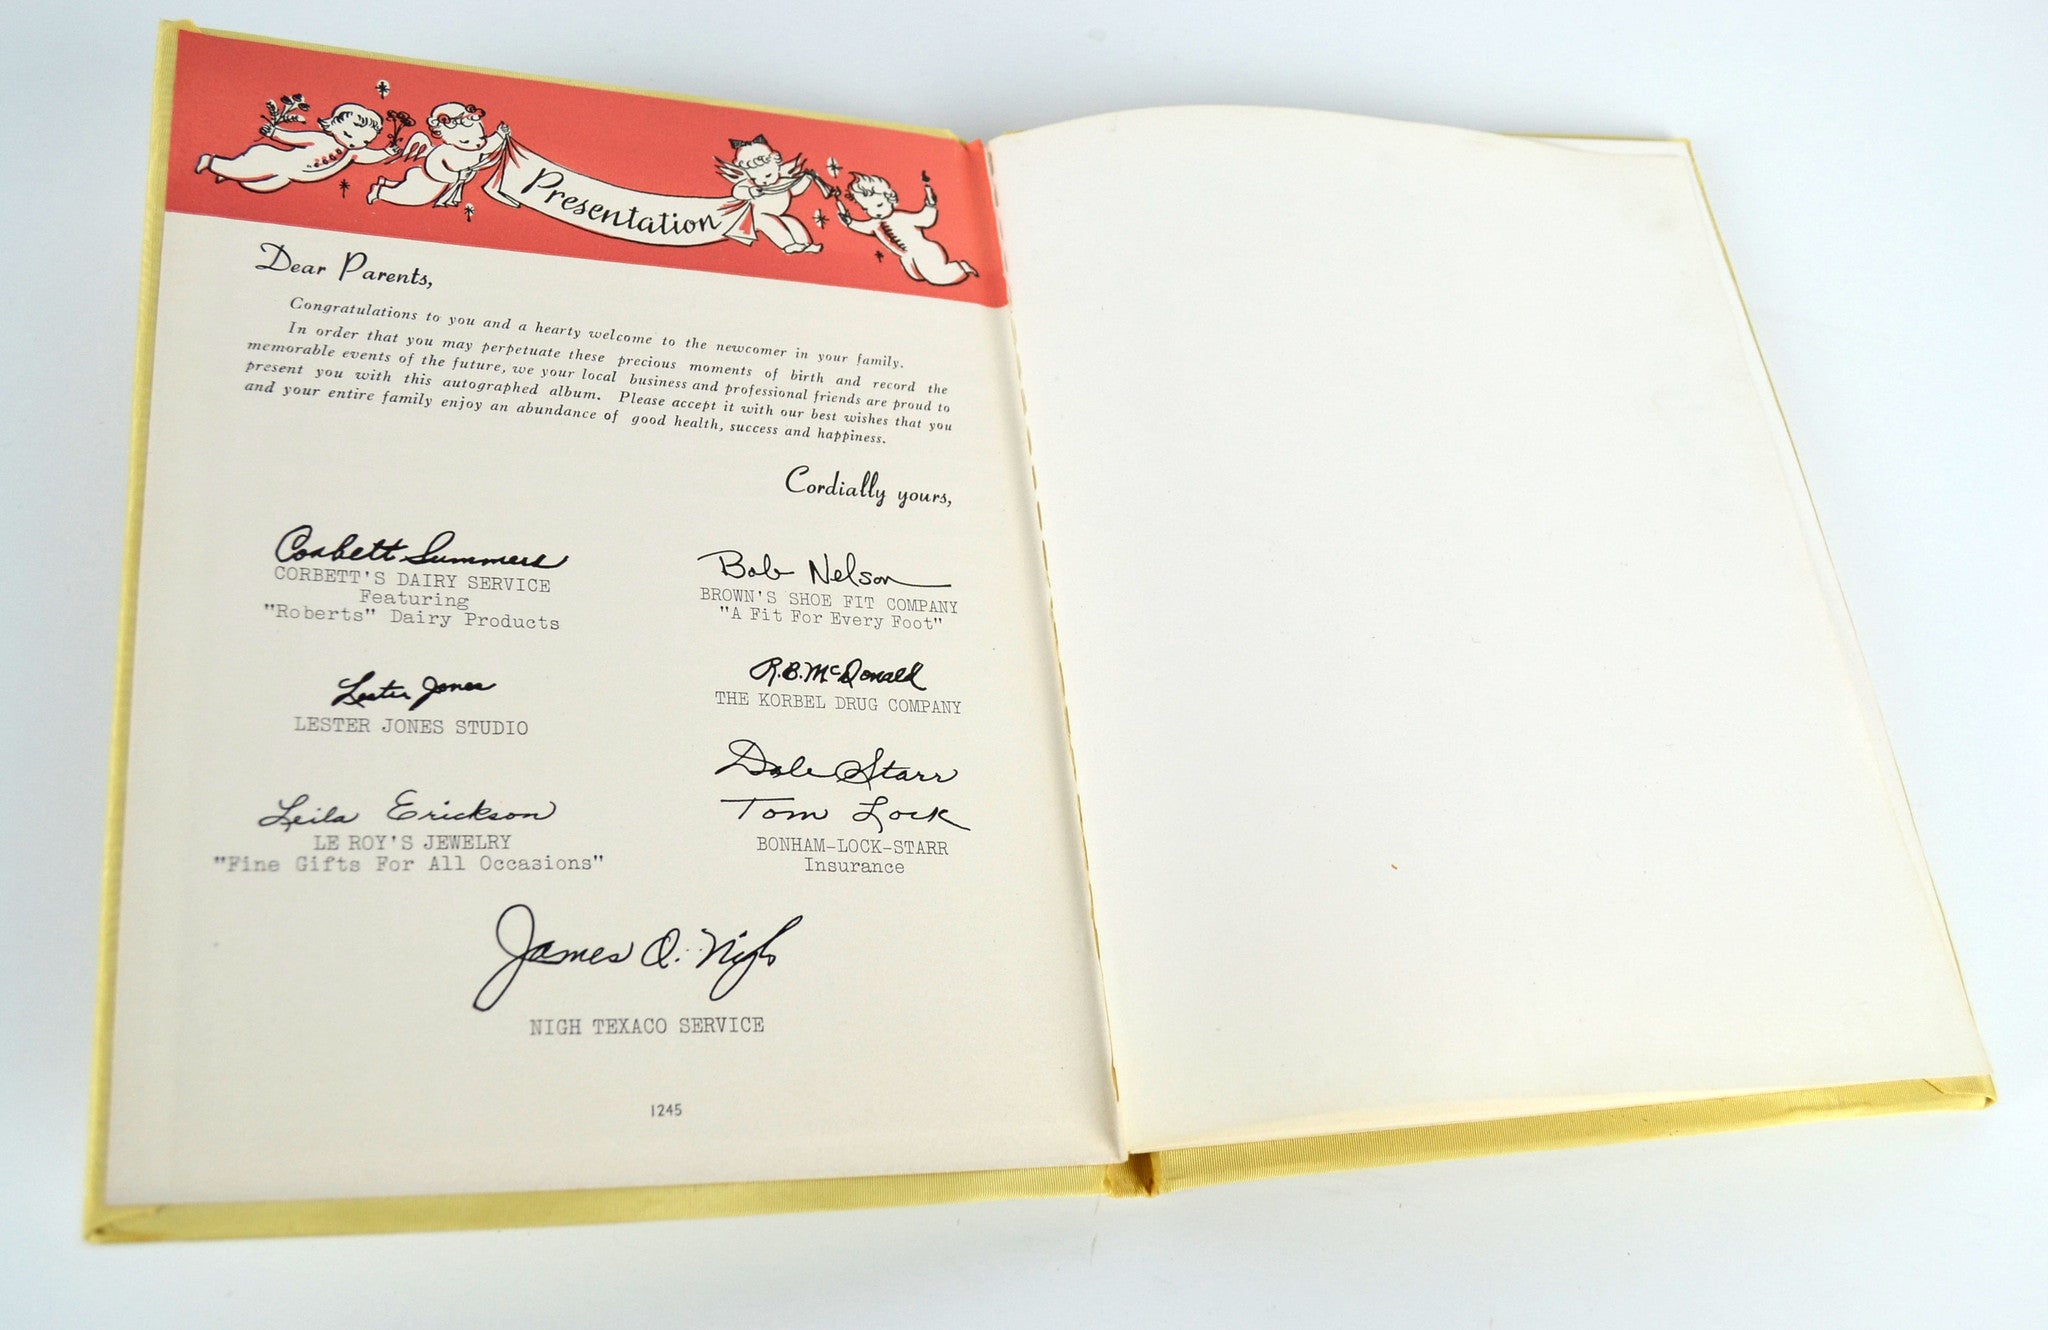 Presentation
Dear Parents,
Congratulations to you and a hearty welcome to the newcomer in your family.
In order that you may perpetuate these precious moments of birth and record the
memorable events of the future, we your local business and professional friends are proud to
present you with this autographed album. Please accept it with our best wishes that you
and your entire family enjoy an abundance of good health, success and happiness.
Cordially yours,
Corbett Summers
CORBETT'S DAIRY SERVICE
Featuring
"Roberts" Dairy Products
Bob Nelson
BROWN'S SHOE FIT COMPANY
"A Fit For Every Foot"
Lester Jones
LESTER JONES STUDIO
R.B. McDonald
THE KORBEL DRUG COMPANY
Leila Erickson
LE ROY'S JEWELRY
"Fine Gifts For All Occasions"
Dale Starr
Tom Lock
BONHAM-LOCK-STARR
Insurance
James O. Nigh
NIGH TEXACO SERVICE
1245